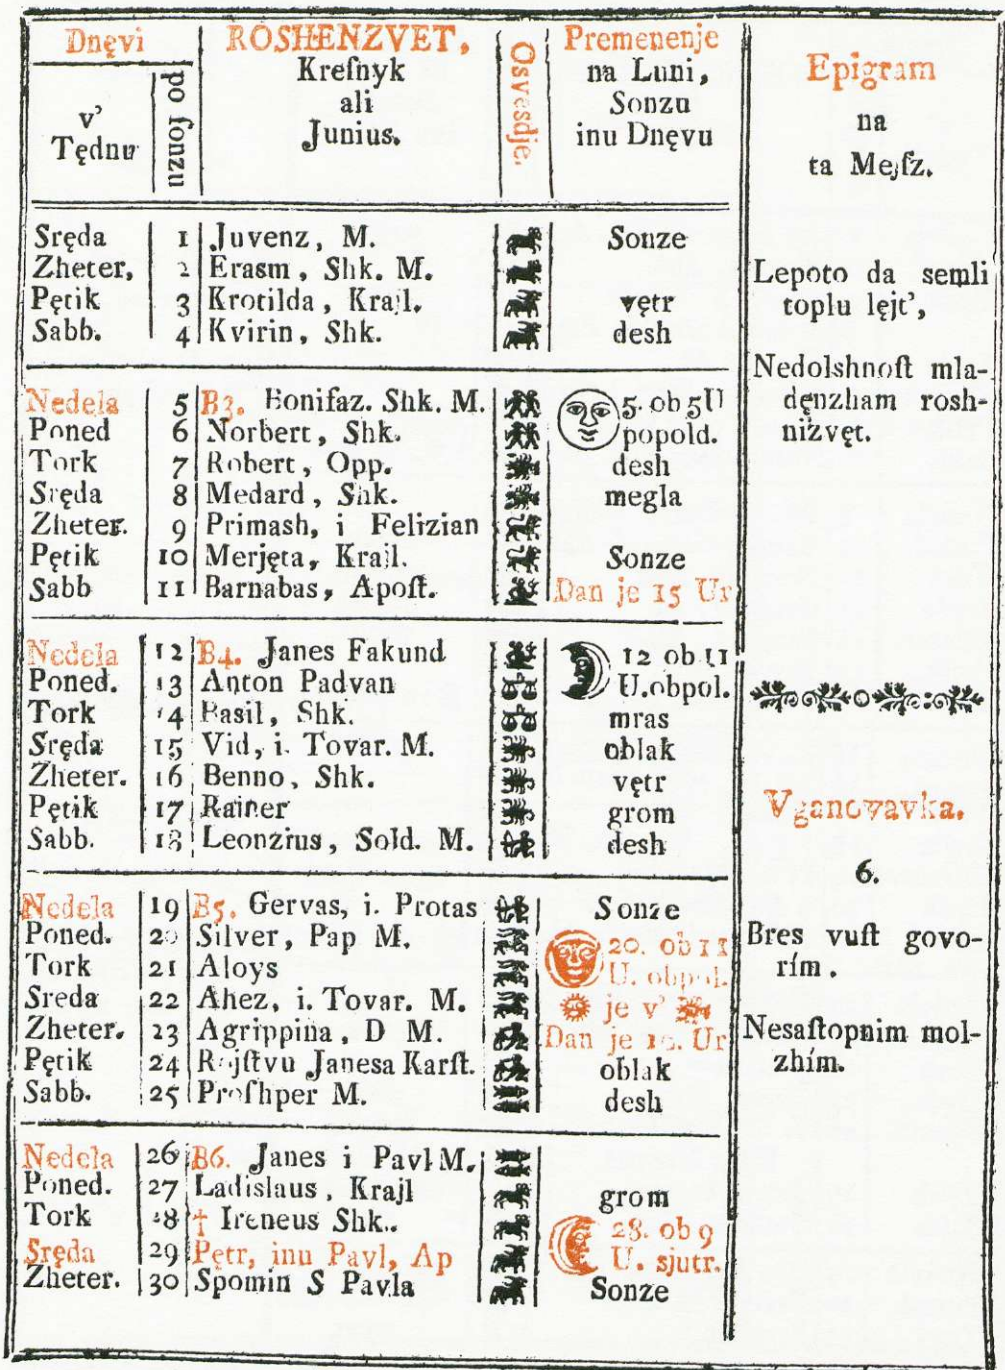 Dnęvi
v'
Tędnu
po ſonzu
ROSHENZVET,
Kreſnyk
ali
Junius.
Osvesdje.
Premenenje
na Luni,
Sonzu
inu Dnęvu
Sręda 1 Juvenz, M. Sonze
Zheter, 2 Erasm, Shk. M.
Pętik 3 Krotilda, Krajl. vętr
Sabb. 4 Kvirin, Shk. desh
Nedela 5 B3. Bonifaz. Shk. M. 5. ob 5 U
Poned 6 Norbert, Shk. popold.
Tork 7 Robert, Opp. desh
Sręda 8 Medard, Shk. megla
Zheter. 9 Primash, i Felizian
Pętik 10 Merjęta, Krajl. Sonze
Sabb 11 Barnabas, Apoſt. Dan je 15 Ur
Nedela 12 B4. Janes Fakund 12 ob 11
Poned. 13 Anton Padvan U.obpol.
Tork 14 Basil, Shk. mras
Sręda 15 Vid, i. Tovar. M. oblak
Zheter. 16 Benno, Shk. vętr
Pętik 17 Rainer grom
Sabb. 18 Leonzius, Sold. M. desh
Nedela 19 B5. Gervas, i. Protas Sonze
Poned. 20 Silver, Pap M. 20. ob 11
Tork 21 Aloys U. obpol.
Sreda 22 Ahez, i. Tovar. M. je v'
Zheter. 23 Agrippina, D M. Dan je Ur
Pętik 24 Rojſtvu Janesa Karſt. oblak
Sabb. 25 Proſhper M. desh
Nedela 26 B6. Janes i Pavl M.
Poned. 27 Ladislaus, Krajl grom
Tork 28 † Ireneus Shk.. 28. ob 9
Sręda 29 Pętr, inu Pavl, Ap U. sjutr.
Zheter. 30 Spomin S Pavla Sonze
Epigram
na
ta Mejſz.
Lepoto da semli
toplu lęjt',
Nedolshnoſt mla-
dęnzham rosh-
nizvęt.
Vganovavka.
6.
Bres vuſt govo-
rím.
Nesaſtopnim mol-
zhím.